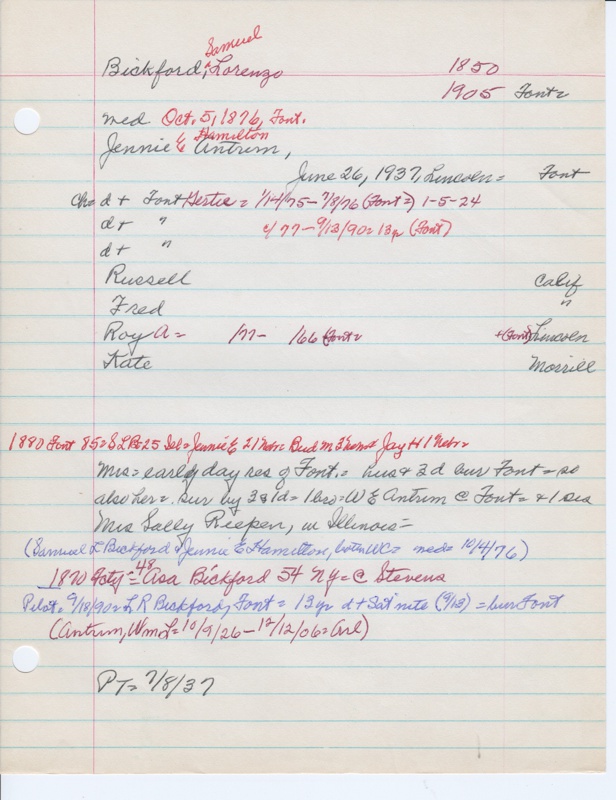 Samuel
Bickford, ^ Lorenzo 1850
1905 Font=
med Oct. 5, 1876, Font.
Hamilton
Jennie E Antrim,
June 26, 1937, Lincoln= Font
Ch= d + Font Gertie = 1/14/75 - 7/8/76 (Font=) 1-5-24
d + " c/77 - 9/13/90 = 13yr (Font)
d + "
Russell Calif
Fred "
Roy A= /77- /66 Font= +(Font) Lincoln
Kate Morrill
1880 Font 85= S L B= 25 Ill= Jennie E 21 Nebr Bud m Thomas Jay H 1 Nebr=
Mrs= early day res of Font.= hus & 3 d bur Font= so
also her= sur by 3 s 1d= 1 bro= W E Antrim @ Font= & 1 sis
Mrs Sally Riepen, in Illinois=
(Samuel L Bickford & Jennie E Hamilton, both WC= med= 10/4/76)
1870 = 48 Asa Bickford 54 NY= @ Stevens
Pilot= 9/18/90= L R Bickford, Font= 13yr d + Sat nite (9/13) = bur Font
(Antrim, Wm L= 10/9/26 - 12/12/06= Arl)
PT= 7/8/37